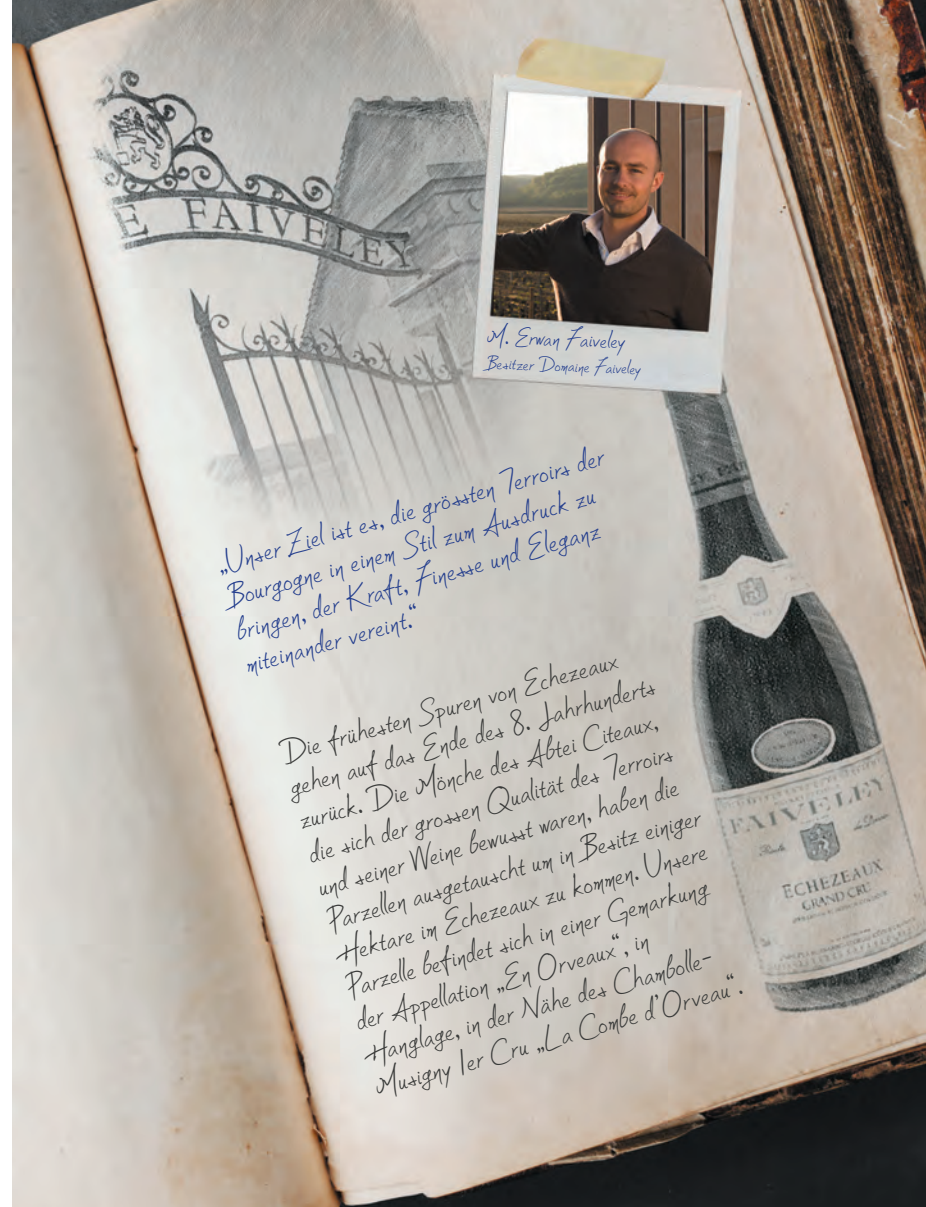 E FAIVELEY
M. Erwan Faiveley
Besitzer Domaine Faiveley
„Unser Ziel ist es, die grössten Terroirs der
Bourgogne in einem Stil zum Ausdruck zu
bringen, der Kraft, Finesse und Eleganz
miteinander vereint.“
Die frühesten Spuren von Echezeaux
gehen auf das Ende des 8. Jahrhunderts
zurück. Die Mönche des Abtei Citeaux,
die sich der grossen Qualität des Terroirs
und seiner Weine bewusst waren, haben die
Parzellen ausgetauscht um in Besitz einiger
Hektare im Echezeaux zu kommen. Unsere
Parzelle befindet sich in einer Gemarkung
der Appellation „En Orveaux“, in
Hanglage, in der Nähe des Chambolle-
Musigny 1er Cru „La Combe d'Orveau“.
FAIVELEY
ECHEZEAUX
GRAND CRU